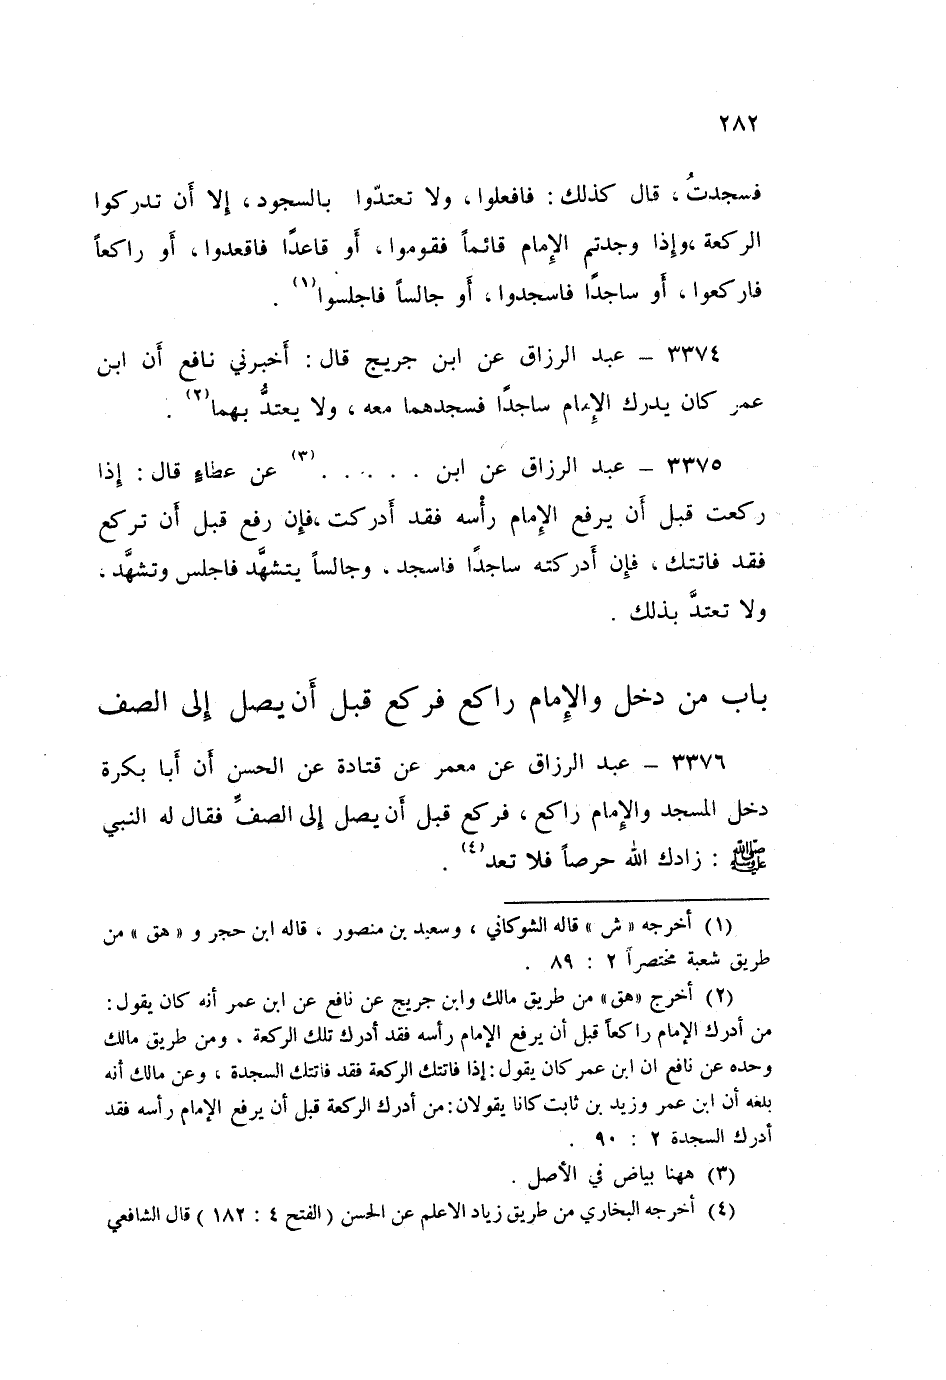 ٢٨٢
فسجدتُ ، قال كذلك : فافعلوا ، ولا تعتدّوا بالسجود ، إلا أَن تدركوا
الركعة ،وإذا وجدتم الإمام قائماً فقوموا ، أَو قاعدًا فاقعدوا ، أَو راكعاً
فاركعوا ، أَو ساجدًا فاسجدوا ، أَو جالساً فاجلسوا(١) .
٣٣٧٤ – عبد الرزاق عن ابن جريج قال : أَخبرني نافع أَن ابن
عمر كان يدرك الإمام ساجدًا فسجدهما معه ، ولا يعتدُّ بهما(٢) .
٣٣٧٥ – عبد الرزاق عن ابن . . . . . .(٣) عن عطاءٍ قال : إذا
ركعت قبل أَن يرفع الإمام رأْسه فقد أَدركت ،فإن رفع قبل أَن تركع
فقد فاتتك ، فإن أَدركته ساجدًا فاسجد . وجالساً يتشهَّد فاجلس وتشهَّد .
ولا تعتدَّ بذلك .
باب من دخل والإمام راكع فركع قبل أَن يصل إلى الصف
٣٣٧٦ – عبد الرزاق عن معمر عن قتادة عن الحسن أَن أَبا بكرة
دخل المسجد والإمام راكع ، فركع قبل أَن يصل إلى الصفِّ فقال له النبي
ﷺ : زادك الله حرصاً فلا تعد(٤) .
(١) أخرجه « ش » قاله الشوكاني ، وسعيد بن منصور ، قاله ابن حجر و « هق » من
طريق شعبة مختصراً ٢ : ٨٩ .
(٢) أخرج «هق» من طريق مالك وابن جريج عن نافع عن ابن عمر أنه كان يقول :
من أدرك الإمام راكعاً قبل أن يرفع الإمام رأسه فقد أدرك تلك الركعة . ومن طريق مالك
وحده عن نافع ان ابن عمر كان يقول : إذا فاتتك الركعة فقد فاتتك السجدة ، وعن مالك أنه
بلغه أن ابن عمر وزيد بن ثابت كانا يقولان : من أدرك الركعة قبل أن يرفع الإمام رأسه فقد
أدرك السجدة ٢ : ٩٠ .
(٣) ههنا بياض في الأصل .
(٤) أخرجه البخاري من طريق زياد الاعلم عن الحسن ( الفتح ٤ : ١٨٢ ) قال الشافعي